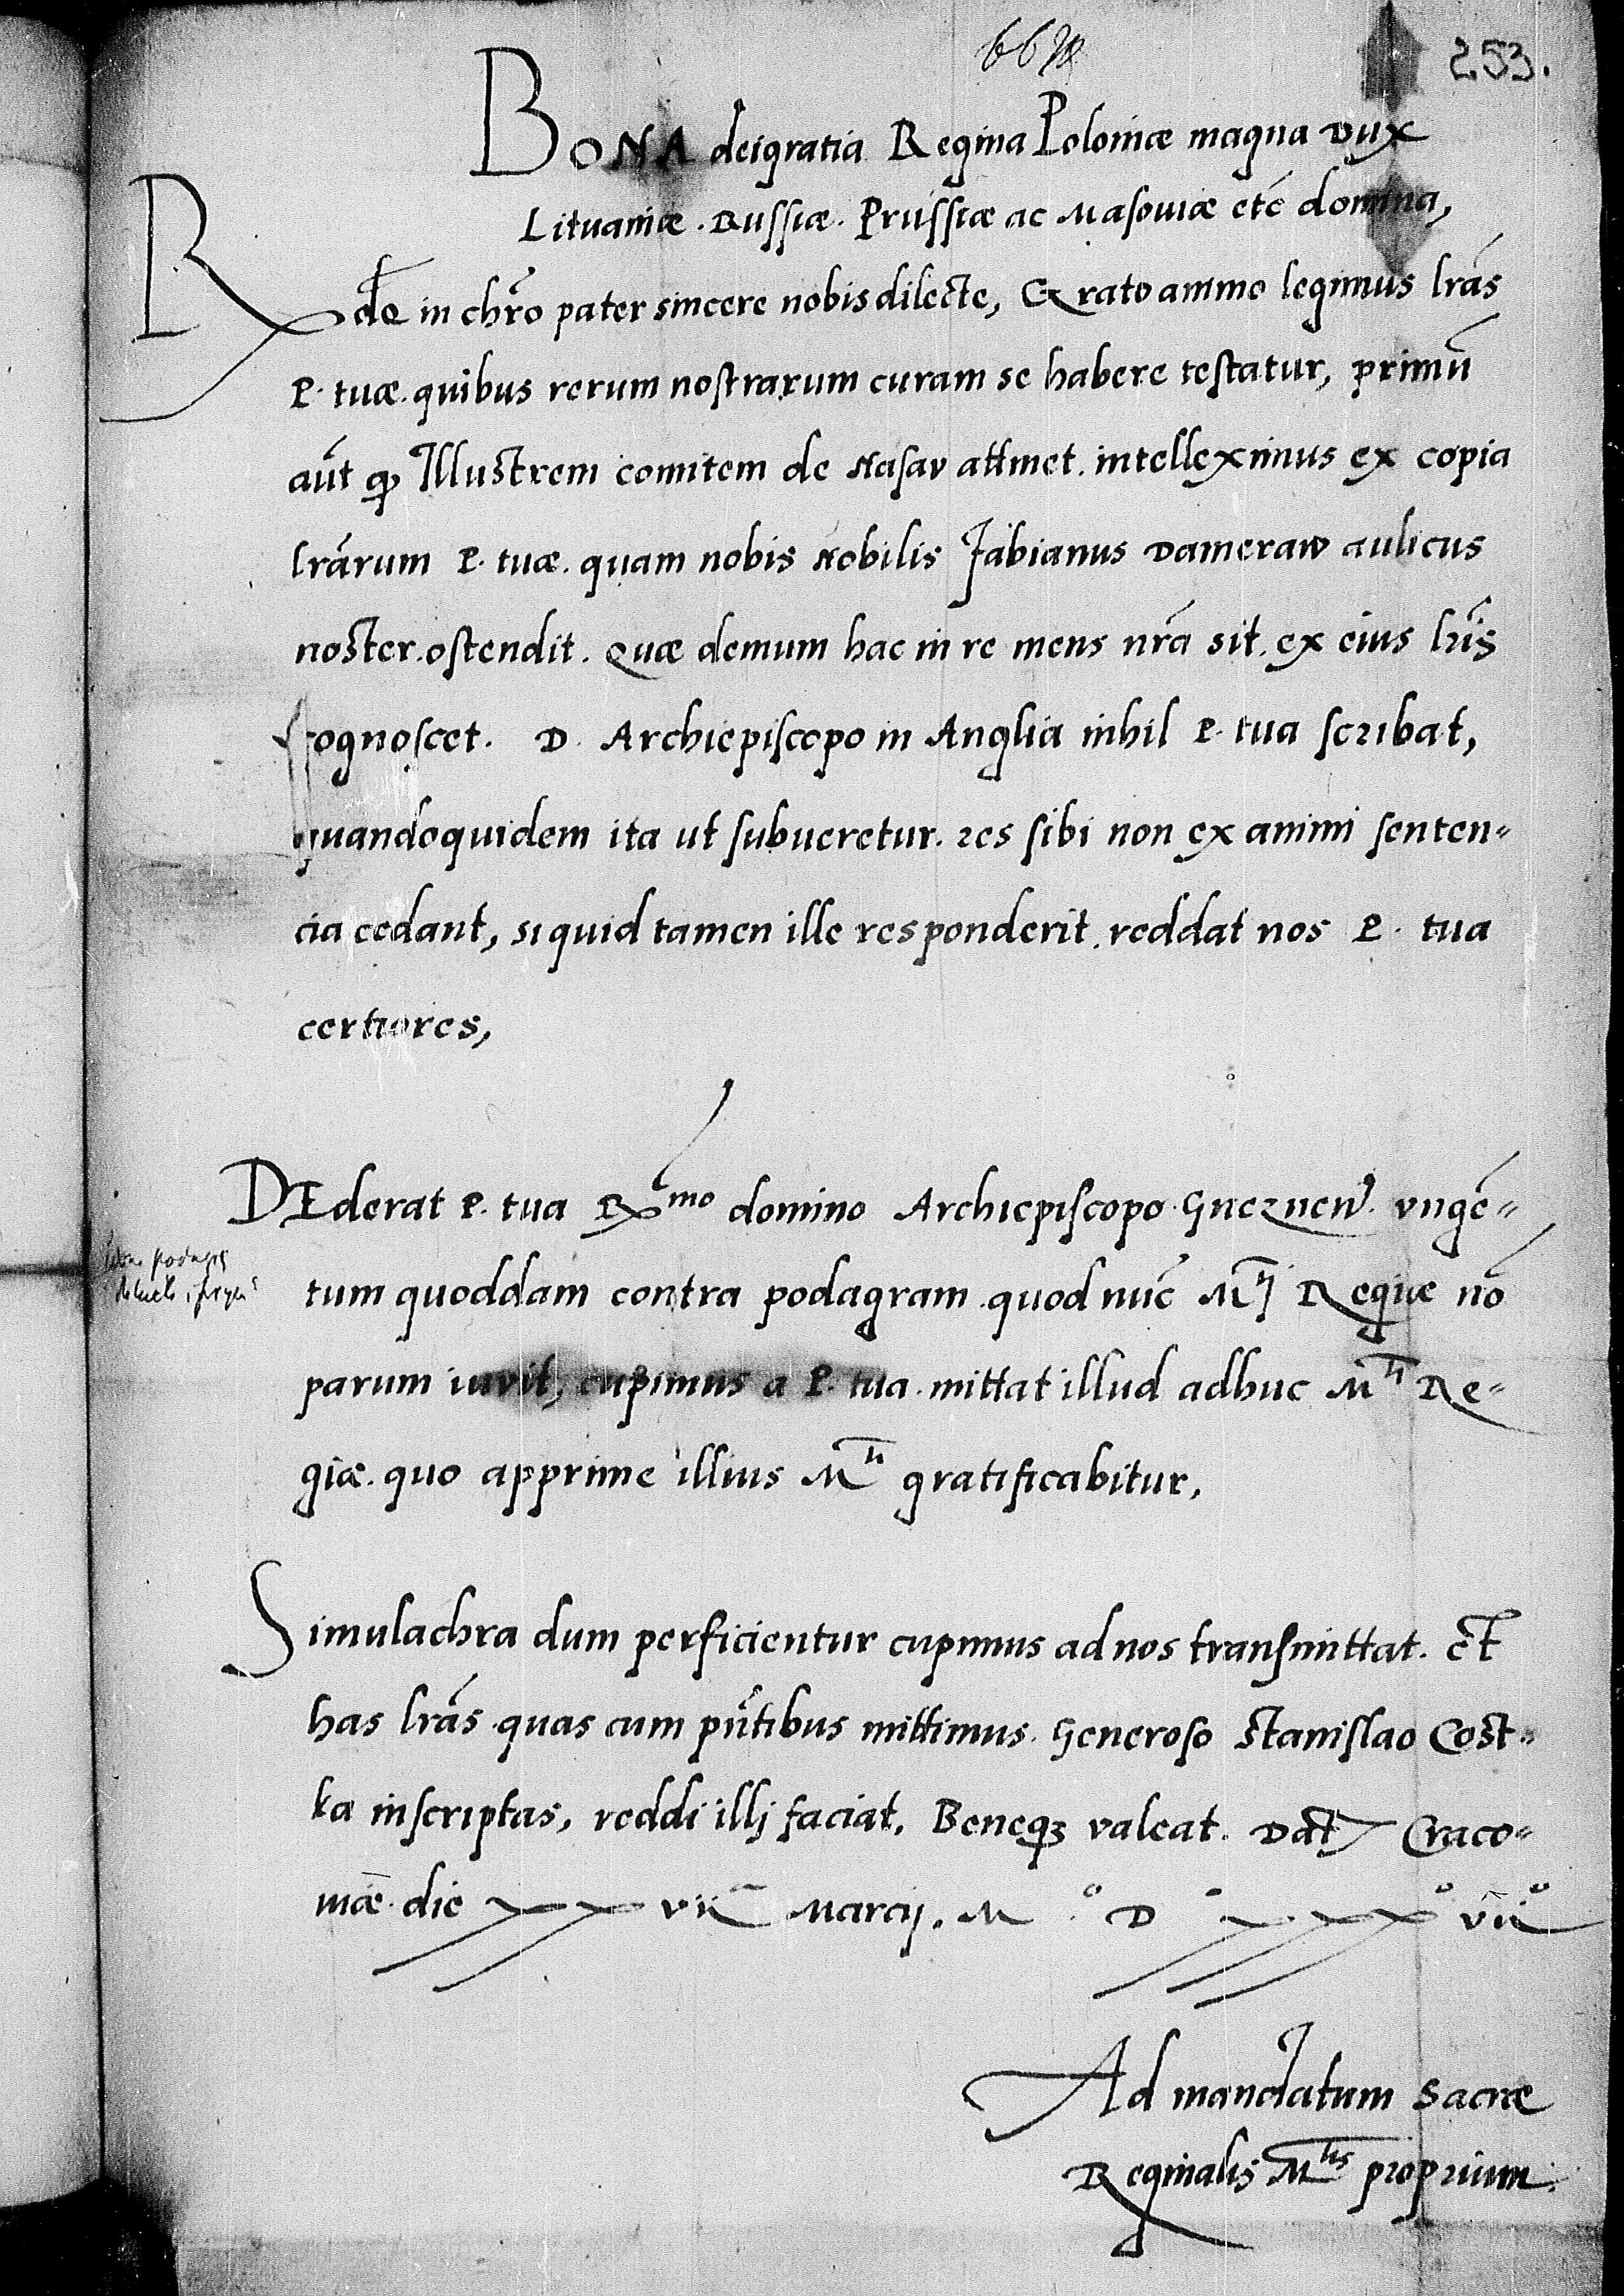 253.
BONA dei gratia Regina Poloniæ magna Dux
Lituaniæ. Russiæ. Prussiæ ac Masoviæ etc̄ domina,
Rde in chr̄o pater sincere nobis dilecte, Grato animo legimus lr̄as
P. tuæ. quibus rerum nostrarum curam se habere testatur, primū
aūt qd Illustrem comitem de Nasav attinet. intelleximus ex copia
lr̄arum P. tuæ. quam nobis Nobilis Fabianus Dameraw aulicus
noster. ostendit. Quæ demum hac in re mens nr̄a sit. ex eius lr̄is
cognoscet. D. Archiepiscopo in Anglia nihil P. tua scribat,
quandoquidem ita ut subveretur. res sibi non ex animi senten-
cia cedant, si quid tamen ille responderit. reddat nos P. tua
certiores,
DEderat P. tua Rmo domino Archiepiscopo Gneznen̄. ungē-
tum quoddam contra podagram. quod nūc Mti Regiæ nō
parum iuvit, cupimus a P. tua. mittat illud adhuc Mti Re-
giæ. quo apprime illius Mti gratificabitur,
Simulachra dum perficientur cupimus ad nos transmittat. Et
has lr̄as. quas cum pn̄tibus mittimus. Generoso Stanislao Cost-
ka inscriptas, reddi illj faciat. Beneqȝ valeat. Dat̄ Craco-
viæ. die xxvii Marcij. Mo Do xxxo viio
Ad mandatum Sacræ
Reginalis Mtis proprium.